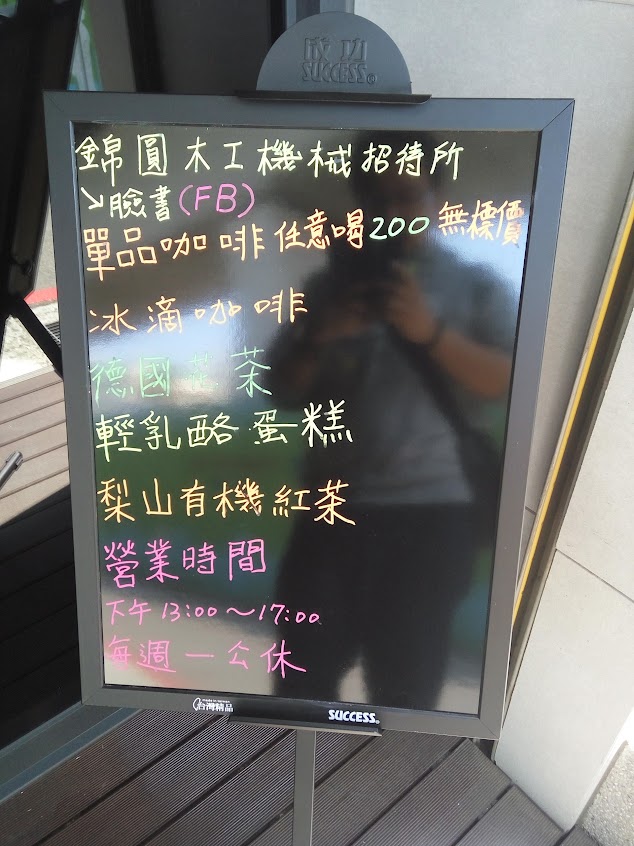 成功
SUCCESS®
錦圓木工機械招待所
↘臉書(FB)
單品咖啡任意喝200無標價
冰滴咖啡
德國 茶
輕乳酪蛋糕
梨山有機紅茶
營業時間
下午13:00～17:00
每週一公休
台灣精品
SUCCESS®